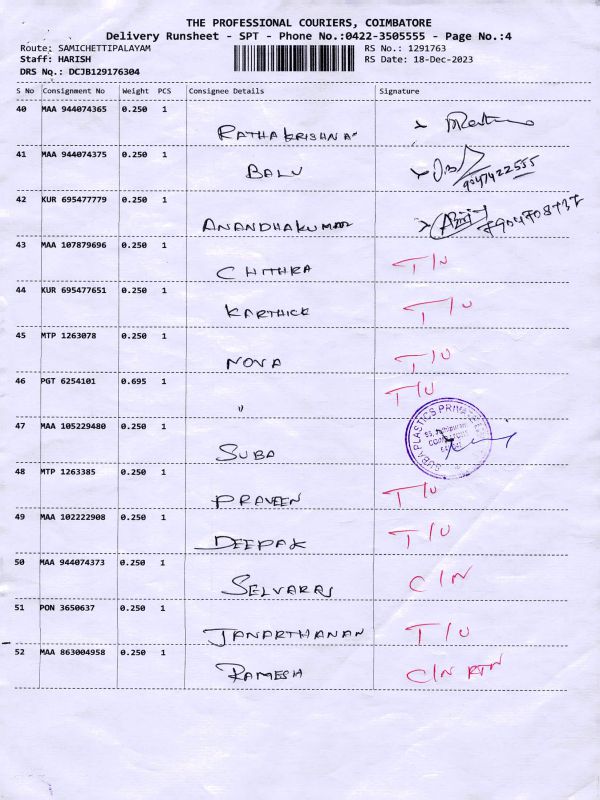 THE PROFESSIONAL COURIERS, COIMBATORE
Delivery Runsheet - SPT - Phone No.:0422-3505555 - Page No.:4
Route: SAMICHETTIPALAYAM RS No.: 1291763
Staff: HARISH RS Date: 18-Dec-2023
DRS No.: DCJB129176304
S No Consignment No Weight PCS Consignee Details Signature
40 MAA 944074365 0.250 1
RATHAKRISHNA
41 MAA 944074375 0.250 1
BALU
9047422555
42 KUR 695477779 0.250 1
ANANDHAKUMAR 7904708737
43 MAA 107879696 0.250 1
CHITHRA T/U
44 KUR 695477651 0.250 1
KARTHICK T/U
45 MTP 1263078 0.250 1
NOVA T/U
46 PGT 6254101 0.695 1
" T/U
47 MAA 105229480 0.250 1
SUBA
SUBA PLASTICS PRIVATE
48 MTP 1263385 0.250 1
PRAVEEN T/U
49 MAA 102222908 0.250 1
DEEPAK T/U
50 MAA 944074373 0.250 1
SELVARAJ C/N
51 PON 3650637 0.250 1
JANARTHANAN T/U
52 MAA 863004958 0.250 1
RAMESH C/N RTN